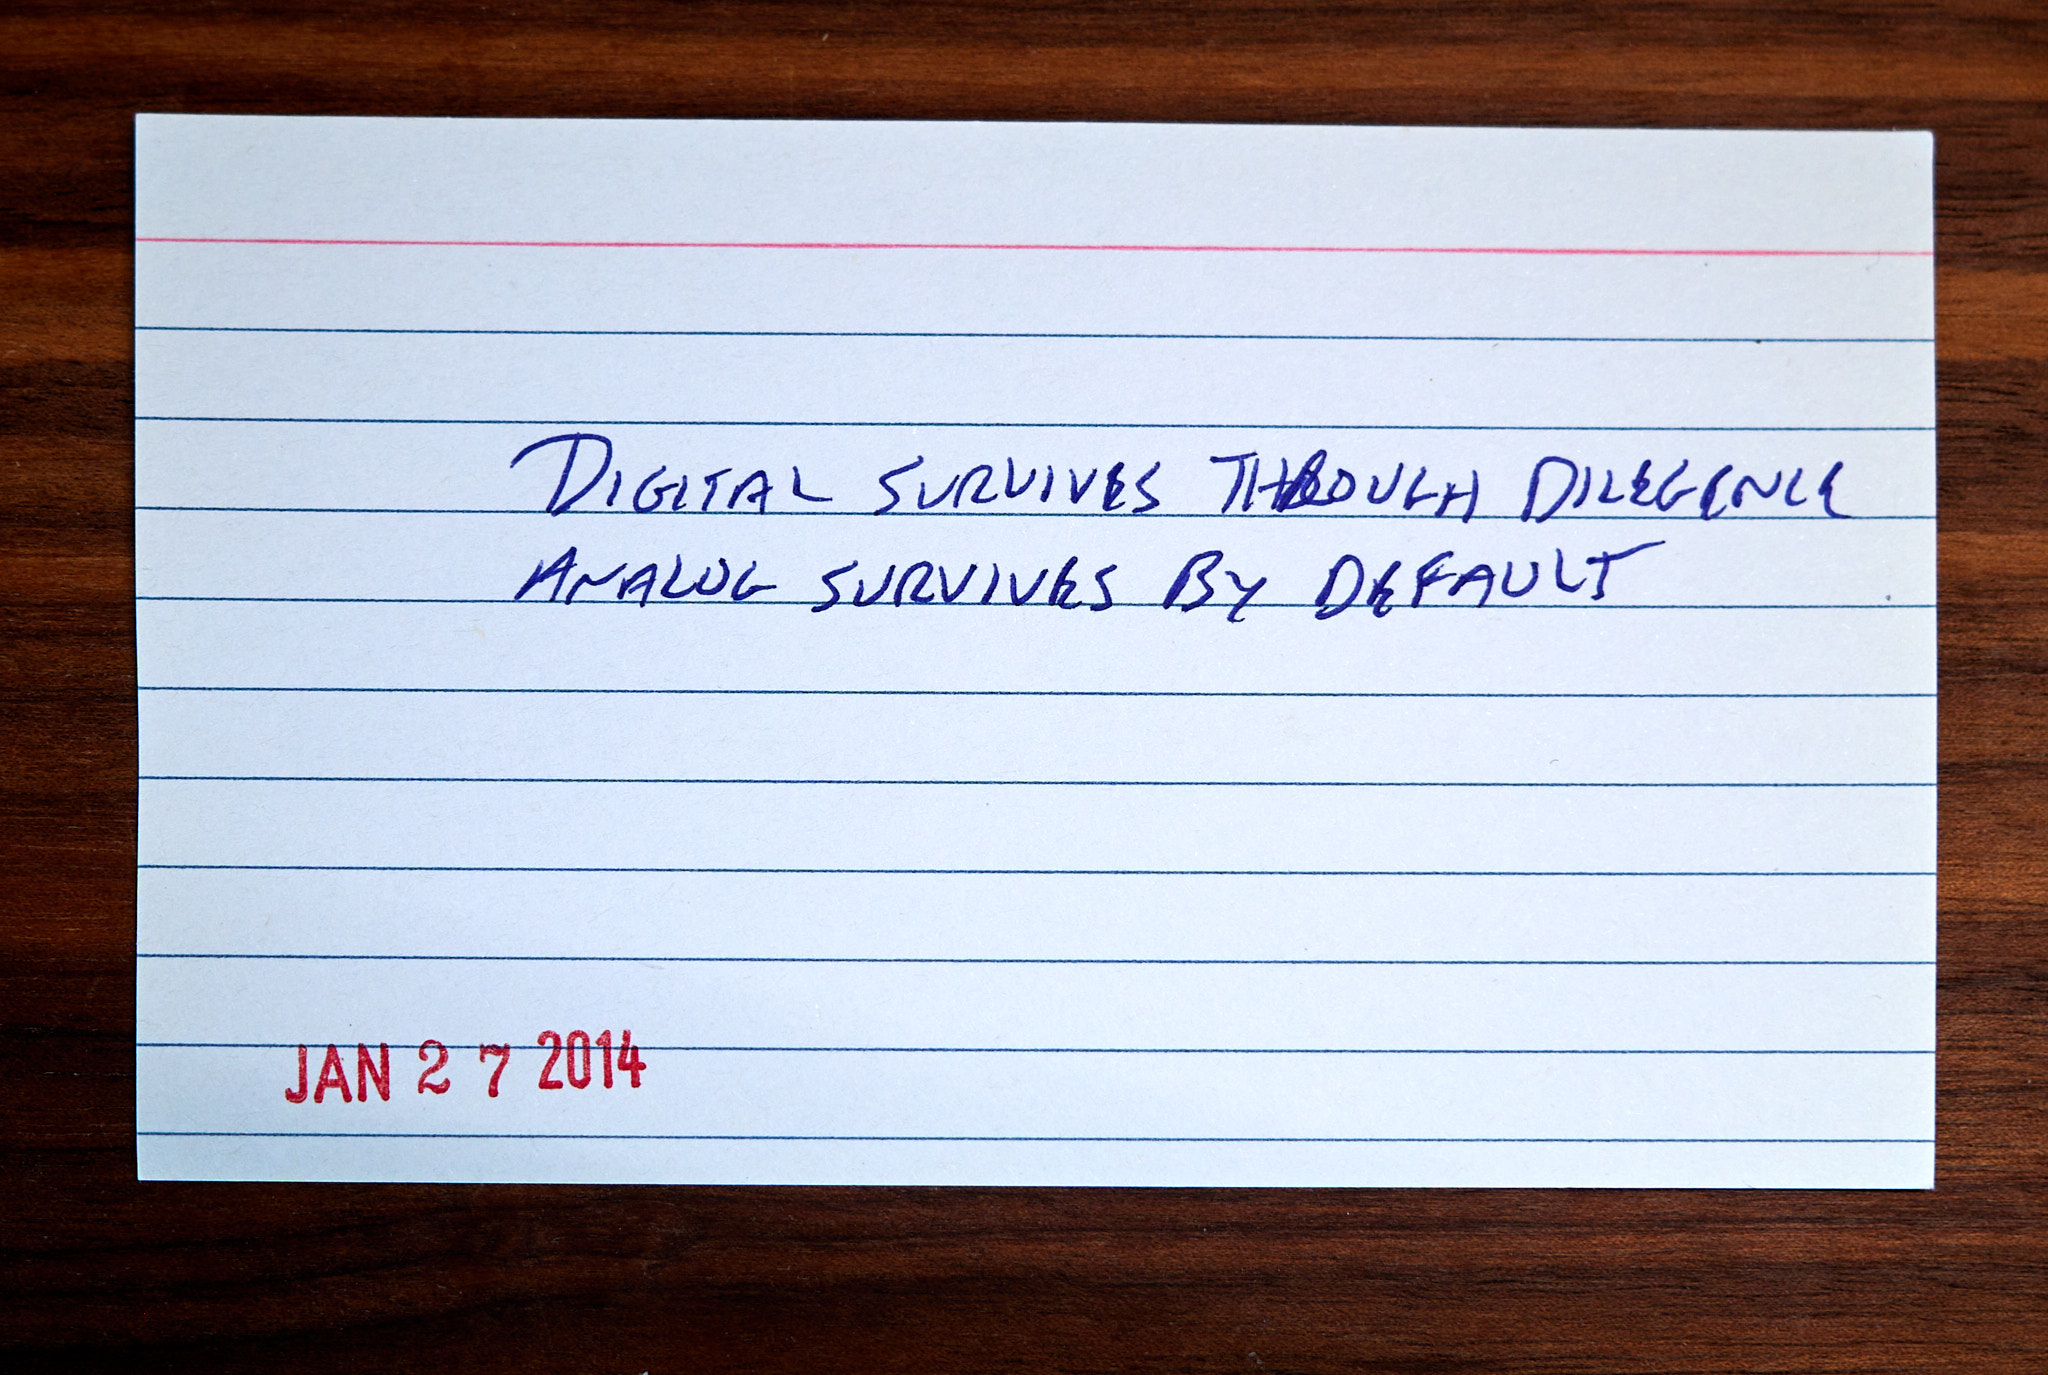 DIGITAL SURVIVES THROUGH DILEGENCE
ANALOG SURVIVES BY DEFAULT
JAN 27 2014